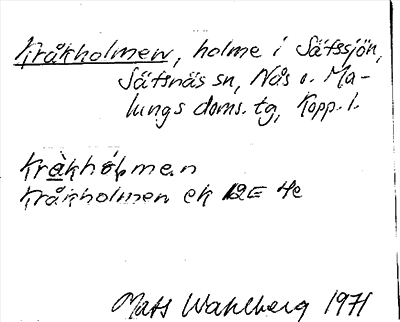 Kråkholmen, holme i Sätssjön,
Sätsnäs sn, Nås o. Ma-
lungs doms. tg, Kopp. l.
Kråkhólmen
Kråkholmen ek 12E 4e
Mats Wahlberg 1971